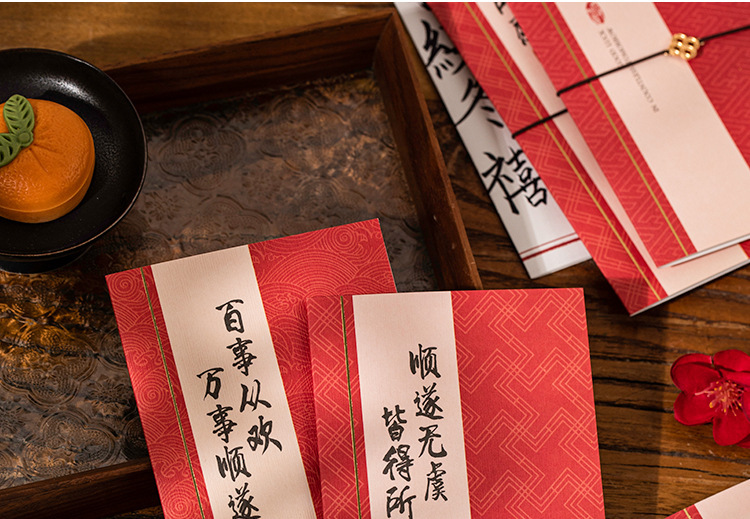 冬禧
百事从欢
万事顺遂
顺遂无虞
皆得所